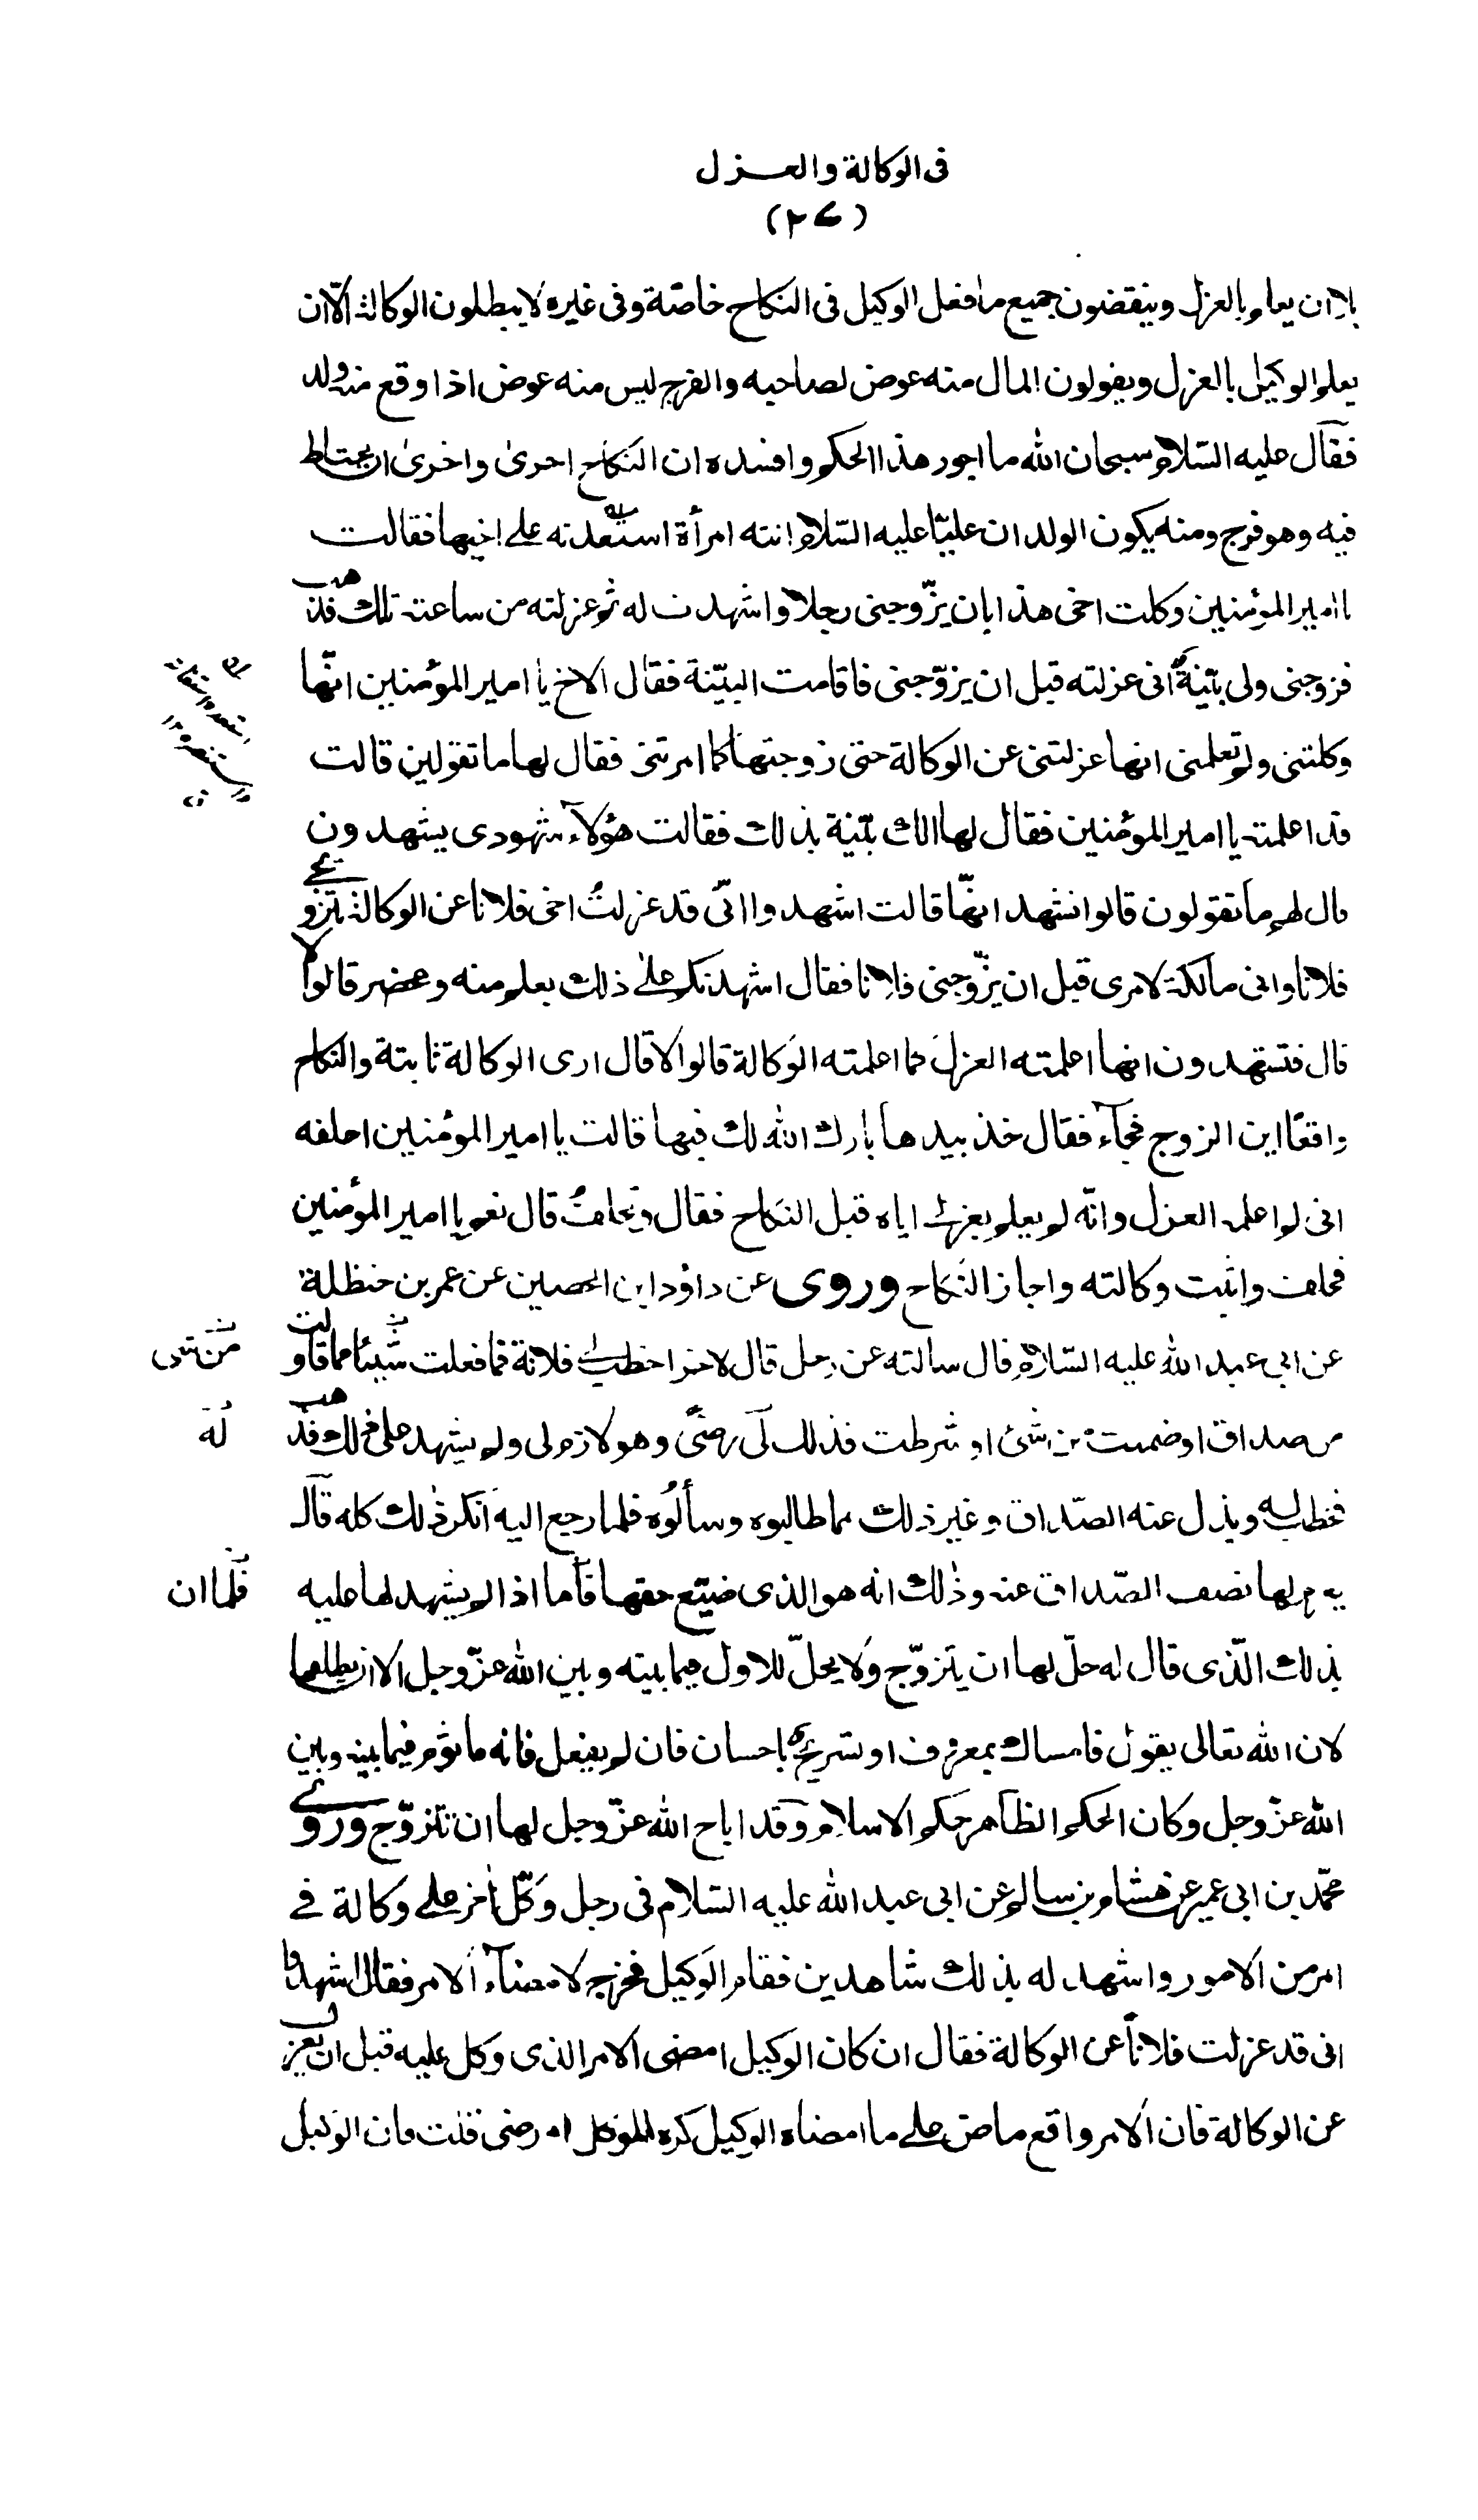 فى الوكالة والعزل
(٢٧)
بلا ان يعلم بالعزل وينقضون جميع ما فعل الوكيل فى النكاح خاصّة وفى غيره لا يبطلون الوكالة الّا ان
يعلم الوكيل بالعزل ويقولون المال منه عوض لصاحبه والفرج ليس منه عوض اذا وقع منه ولد
فقال عليه السّلام سبحان الله ما اجور هذا الحكم وافسده ان النكاح احرى واحرى ان يحتاط
فيه وهو فرج ومنه يكون الولد ان عليّا عليه السّلام اتته امرأة استعدته على اخيها فقالت
يا امير المؤمنين وكلت اخى هذا بان يزّوجنى رجلا واشهدت له ثم عزلته من ساعته تلك فذهب
فزوجنى ولى بيّنة انى عزلته قبل ان يزوّجنى فاقامت البيّنة فقال الاخ يا امير المؤمنين انّها
وكلتنى ولم تعلمنى انها عزلتنى عن الوكالة حتى زوجتها كما امرتنى فقال لها ما تقولين قالت
قد اعلمته يا امير المؤمنين فقال لها الك بيّنة بذلك فقالت هؤلآء شهودى يشهدون
قال لهم ما تقولون قالوا نشهد انّها قالت اشهدوا انّى قد عزلتُ اخى فلانا عن الوكالة بتزويجى
فلانا وانى مالكة لامرى قبل ان يزّوجنى فلانا فقال اشهدتكم على ذلك بعلم منه ومحضر قالوا لا
قال فتشهدون انها اعلمته العزل كما اعلمته الوكالة قالوا لا قال ارى الوكالة ثابتة والنكاح
واقعًا اين الزوج فجآء فقال خذ بيدها بارك الله لك فيها قالت يا امير المؤمنين احلفه
انى لم اعلمه العزل وانّه لم يعلم بعزلى اياه قبل النكاح فقال وتحلفُ قال نعم يا امير المؤمنين
فحلف واثبت وكالته واجاز النكاح وروى عن داؤد ابن الحصين عن عمر بن حنظلة
عن ابى عبد الله عليه السّلام قال سالته عن رجل قال لاخر اخطب لى فلانة فما فعلت شيئا مما قاولت
من شى
من صداق او ضمنت من شئ او شرطت فذلك لى رضًى وهو لازم لى ولم يشهد على ذلك فذهب
له
فخطب له وبذل عنه الصّداق وغير ذلك مما طالبوه وسألُوه فلما رجع اليه انكر ذلك كله قال
يغرم لها نصف الصّداق عنه وذلك انه هو الذى ضيّع حقها فاما اذا لم يشهد لها عليه
فلما ان
بذلك الّذى قال له حلّ لها ان يتزوّج ولا يحلّ للاول فيما بينه وبين الله عزّ وجل الا ان يطلقها
لان الله تعالى يقول فامساك بمعروف او تسريح باحسان فان لم يفعل فانه ماثوم فيما بينه وبين
الله عزّ وجل وكان الحكم الظاهر حكم الاسلام وقد اباح الله عزّ وجل لها ان تتزوّج وروى
محمّد بن ابى عمير عن هشام بن سالم عن ابى عبد الله عليه السّلام فى رجل وكّل اخر على وكالة فى
امر من الامور واشهد له بذلك شاهدين فقام الوكيل فخرج لامضآء الامر فقال اشهدوا
انى قد عزلت فلانًا عن الوكالة فقال ان كان الوكيل امضى الامر الذى وكل عليه قبل ان يعزل
عن الوكالة فان الامر واقع ماض على ما امضاه الوكيل كره الموكل ام رضى قلت فان الوكيل